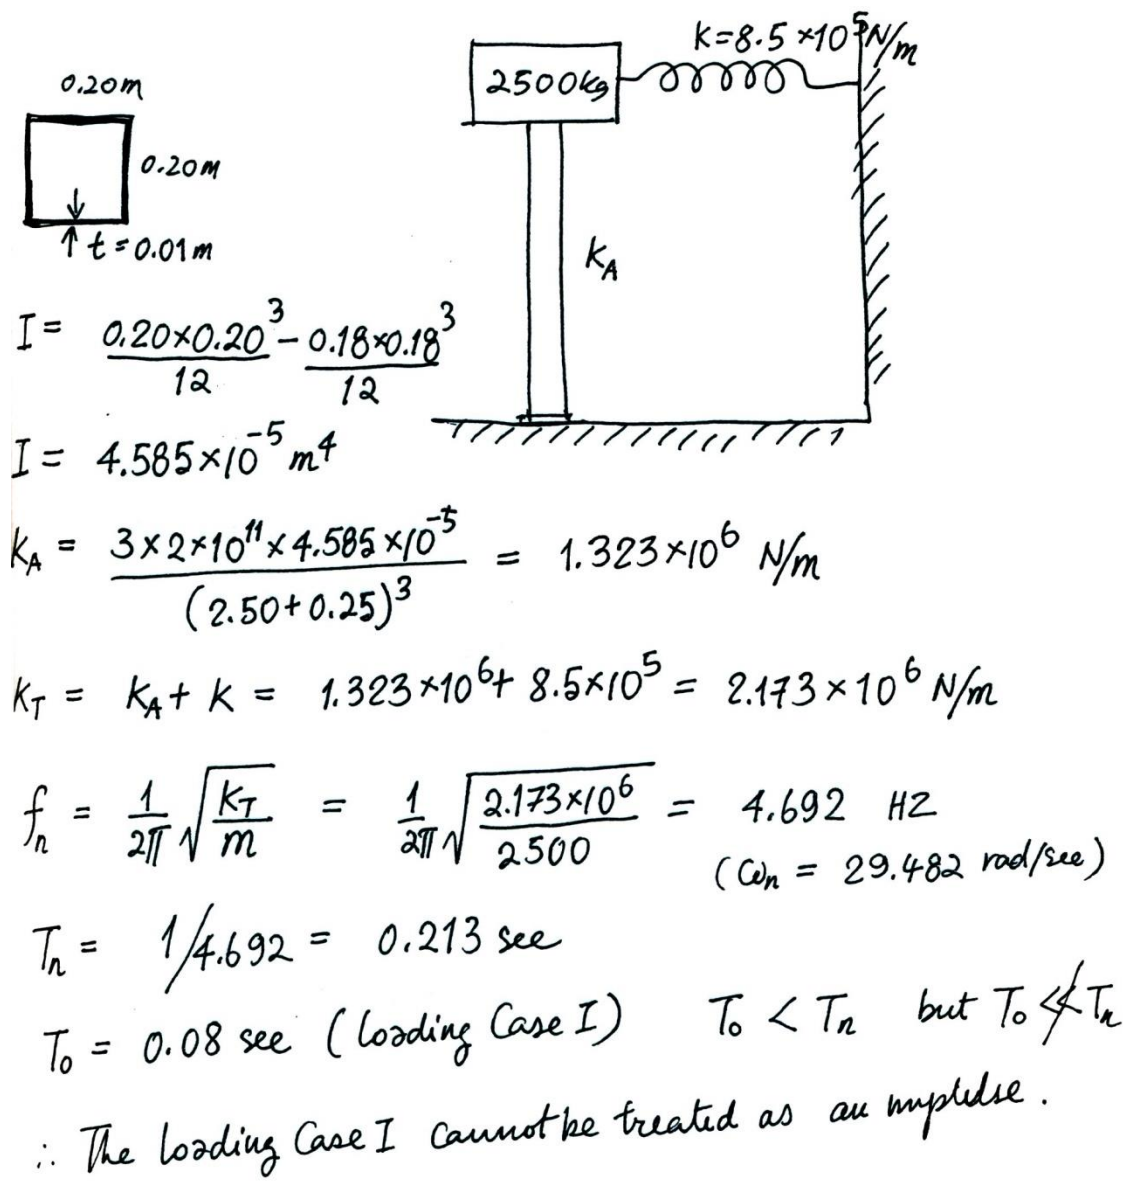 0.20m
0.20m
t=0.01m
k=8.5×10⁵N/m
2500kg
k_A
I = (0.20×0.20³)/12 - (0.18×0.18³)/12
I = 4.585×10⁻⁵ m⁴
k_A = (3×2×10¹¹×4.585×10⁻⁵)/(2.50+0.25)³ = 1.323×10⁶ N/m
k_T = k_A + k = 1.323×10⁶ + 8.5×10⁵ = 2.173×10⁶ N/m
f_n = 1/2π √(k_T/m) = 1/2π √(2.173×10⁶/2500) = 4.692 HZ
(ω_n = 29.482 rad/sec)
T_n = 1/4.692 = 0.213 sec
T_o = 0.08 sec (loading Case I) T_o < T_n but T_o ≪̸ T_n
∴ The loading Case I cannot be treated as an